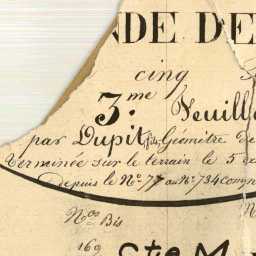 NDE DE
cinq
3.me Feuill
par Dupit fils Géomètre de
Terminée sur le terrain le 5
Depuis le No. 77 au No. 734 compr
Nos. Bis
169
Ste M